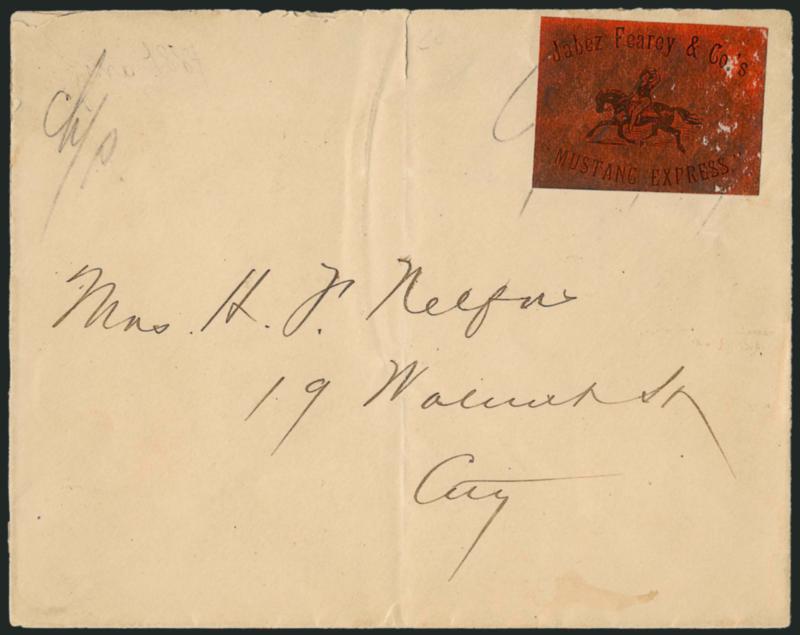 Jabez Fearey & Co's
"MUSTANG EXPRESS."
Mrs. H. F.
19 Walnut St
City